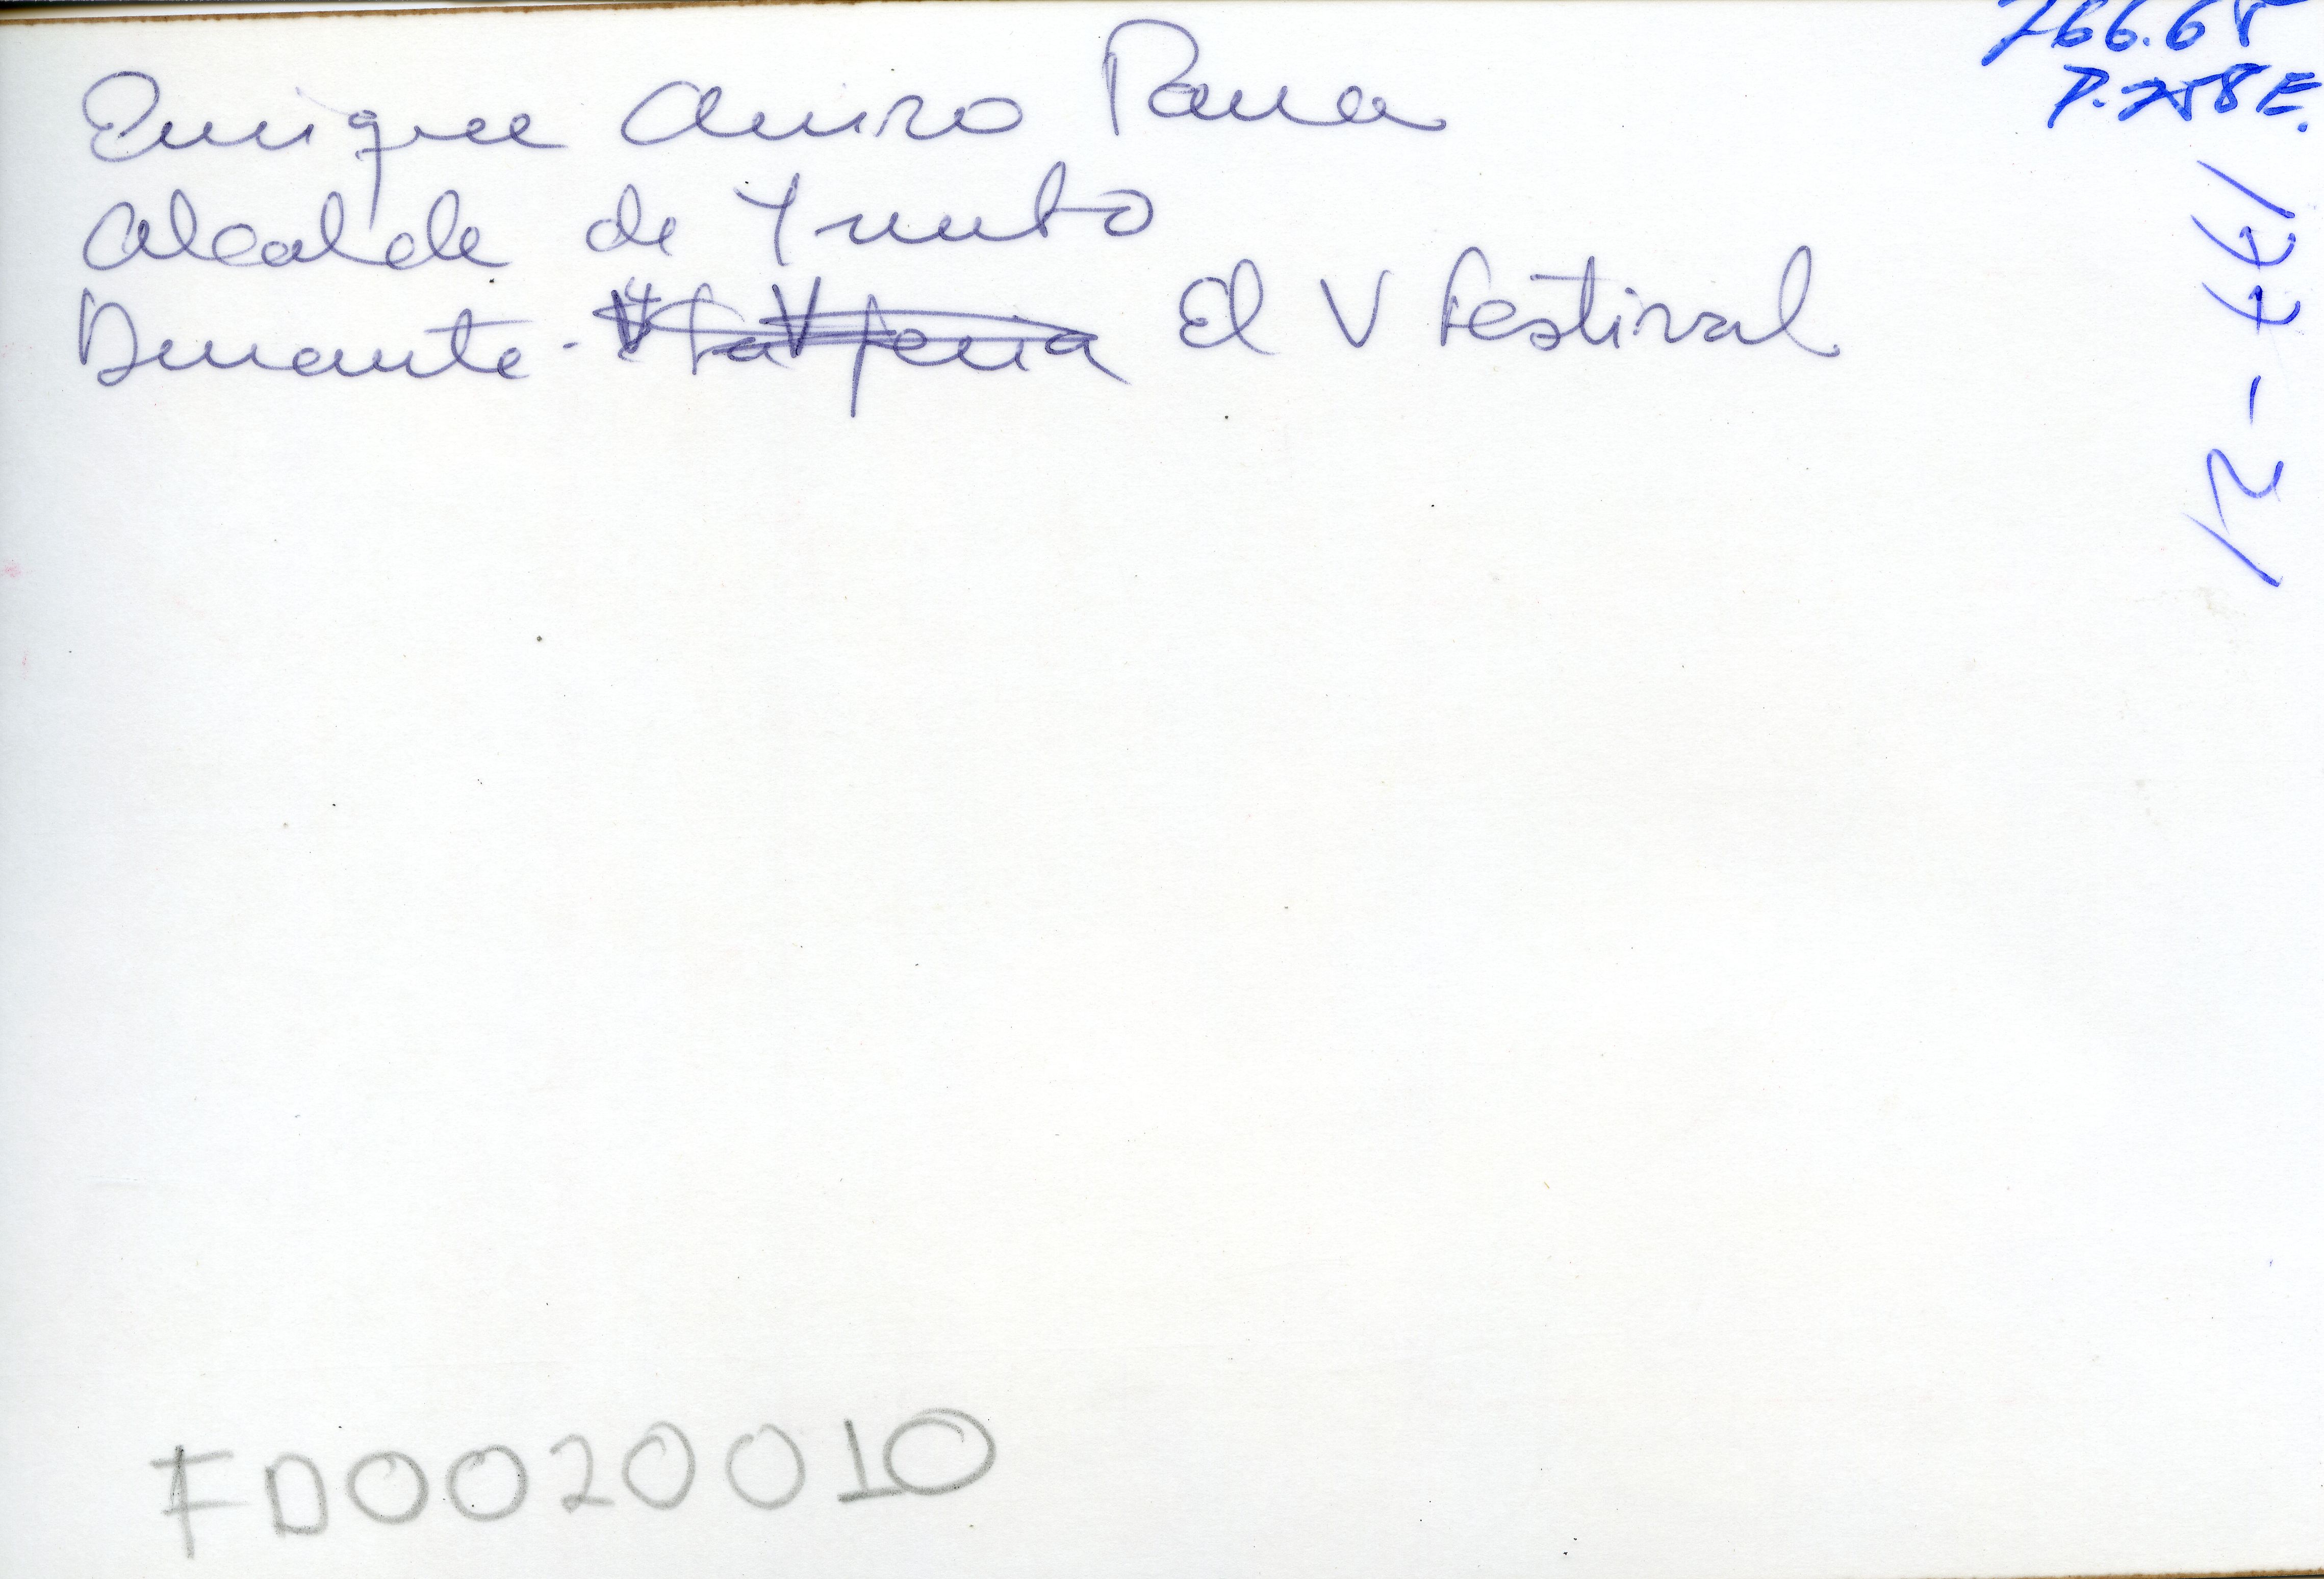 Enrique Amiro Parra
Alcalde de Yumbo
Durante - La V feria El V festival
766.65
P. 258 E.
FD0020010